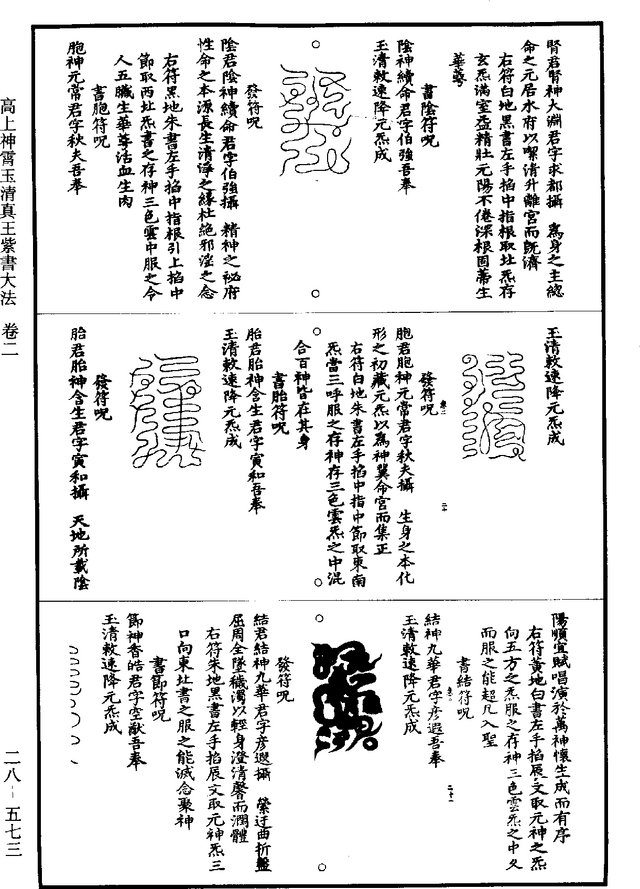 腎君腎神大淵君字求都攝　為身之主總
命之元居水府以㓗清升離宮而旣濟
右符白地黑書左手掐中指根取北炁存
玄炁滿室益精壯元陽不倦深根固蔕生
華蕚
書陰符呪
陰神續命君字伯強吾奉
玉清敕速降元炁成
發符呪
陰君陰神續命君字伯強攝　精神之祕府
性命之本源長生清淨之緣杜絶邪淫之念
右符黑地朱書左手掐中指根引上掐中
節取西北炁書之存神三色雲中服之令
人五臟生華蕚活血生肉
書胞符呪
胞神元常君字秋夫吾奉
玉清敕速降元炁成
發符呪
胞君胞神元常君字秋夫攝　生身之本化
形之初藏元炁以為神翼命宮而集正
右符白地朱書左手掐中指中節取東南
炁當三呼服之存神存三色雲炁之中混
合百神皆在其身
書胎符呪
胎君胎神含生君字寅和吾奉
玉清敕速降元炁成
發符呪
胎君胎神含生君字寅和攝　天地所載陰
陽順宜賦唱演於萬神懷生成而有序
右符黃地白書左手掐辰文取元神之炁
向五方之炁服之存神三色雲炁之中久
而服之能超凡入聖
書結符呪
結神九華君字彦遐吾奉
玉清敕速降元炁成
發符呪
結君結神九華君字彦遐攝　縈迂曲折盤
屈周全墜穢濁以輕身澄清馨而潤體
右符朱地黑書左手掐辰文取元神炁三
口向東北書之服之能滅念聚神
書節符呪
節神香皓君字空猷吾奉
玉清敕速降元炁成
高上神霄玉清真王紫書大法　卷二
二八－五七三